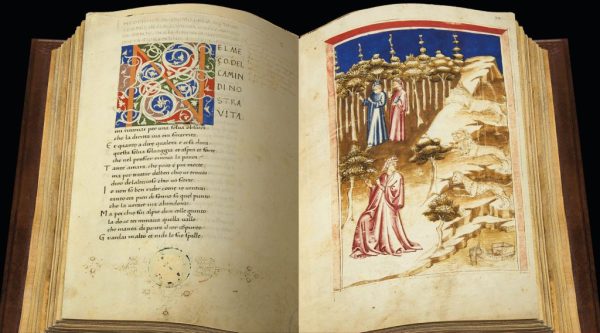 N EL ME
ÇO DEL
CAMIN
DI NO
STRA
VITA.
mi ritrovai per una selva obscura
che la diritta via era smarrita.
E quanto a dire qual era e cosa dura
questa selva selvaggia et aspra et forte
che nel pensier renova la paura.
Tanto amara, che poco e piu morte,
ma per trattar del ben chio vi trovai
diro dellaltre cose chio vo scorte.
I o non so ben ridir come ventrai
tanto era pien di sonno in quel punto
che la verace via abandonai.
Ma poi chio fui al pie dun colle giunto
la dove terminava quella valle
che mavea di paura il cor compunto
Guardai in alto et vidi le sue spalle